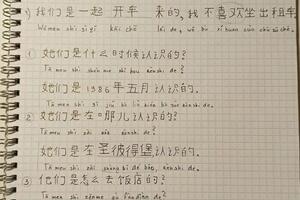 我们是一起 开车 来的, 我不喜欢坐出租车
Wǒmen shì yīqǐ kāi chē lái de, wǒ bù xǐ huan zuò chū zū chē.
① 她们是什么时候认识的?
Tā men shì shén me shí hou rèn shi de?
她们是 1986 年五月认识的.
Tā men shì yī jiǔ bā liù nián wǔ yuè rèn shi de.
② 她们是在哪儿认识的?
Tā men shì zài nǎr rèn shi de?
她们是在圣彼得堡认识的.
Tā men shì zài shèng bǐ dé bǎo rèn shi de.
③ 他们是怎么去饭店的?
Tā men shì zěn me qù fàn diàn de?